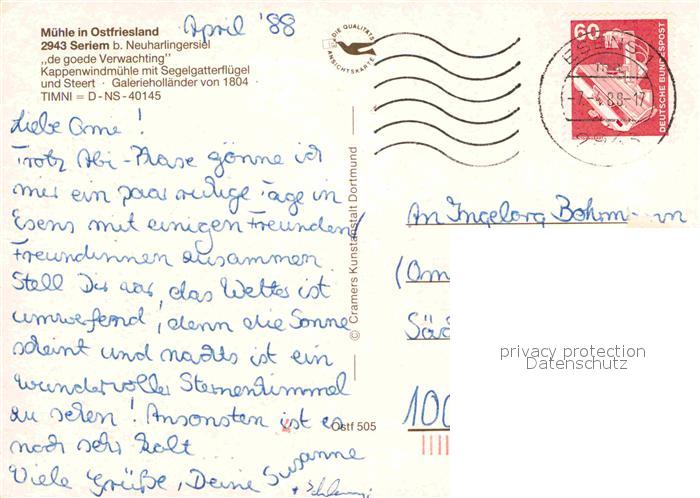 April '88
Mühle in Ostfriesland
2943 Seriem b. Neuharlingersiel
„de goede Verwachting"
Kappenwindmühle mit Segelgatterflügel
und Steert · Galerieholländer von 1804
TIMNI = D - NS - 40145
DIE QUALITÄTS
ANSICHTSKARTE
60
DEUTSCHE BUNDESPOST
ESENS 1
-7.-4.88-17
2943
Liebe Ome!
Trotz Abi-Phase gönne ich
mir ein paar ruhige Tage in
Esens mit einigen Freunden/
Freundinnen zusammen.
Stell Dir vor, das Wetter ist
umwerfend, denn die Sonne
scheint und nachts ist ein
wundervoller Sternenhimmel
zu sehen! Ansonsten ist es
noch sehr kalt.
Viele Grüße, Deine Susanne
© Cramers Kunstanstalt Dortmund
Ostf 505
An Ingeborg Bohrmann
(Om
Süd
100
privacy protection
Datenschutz